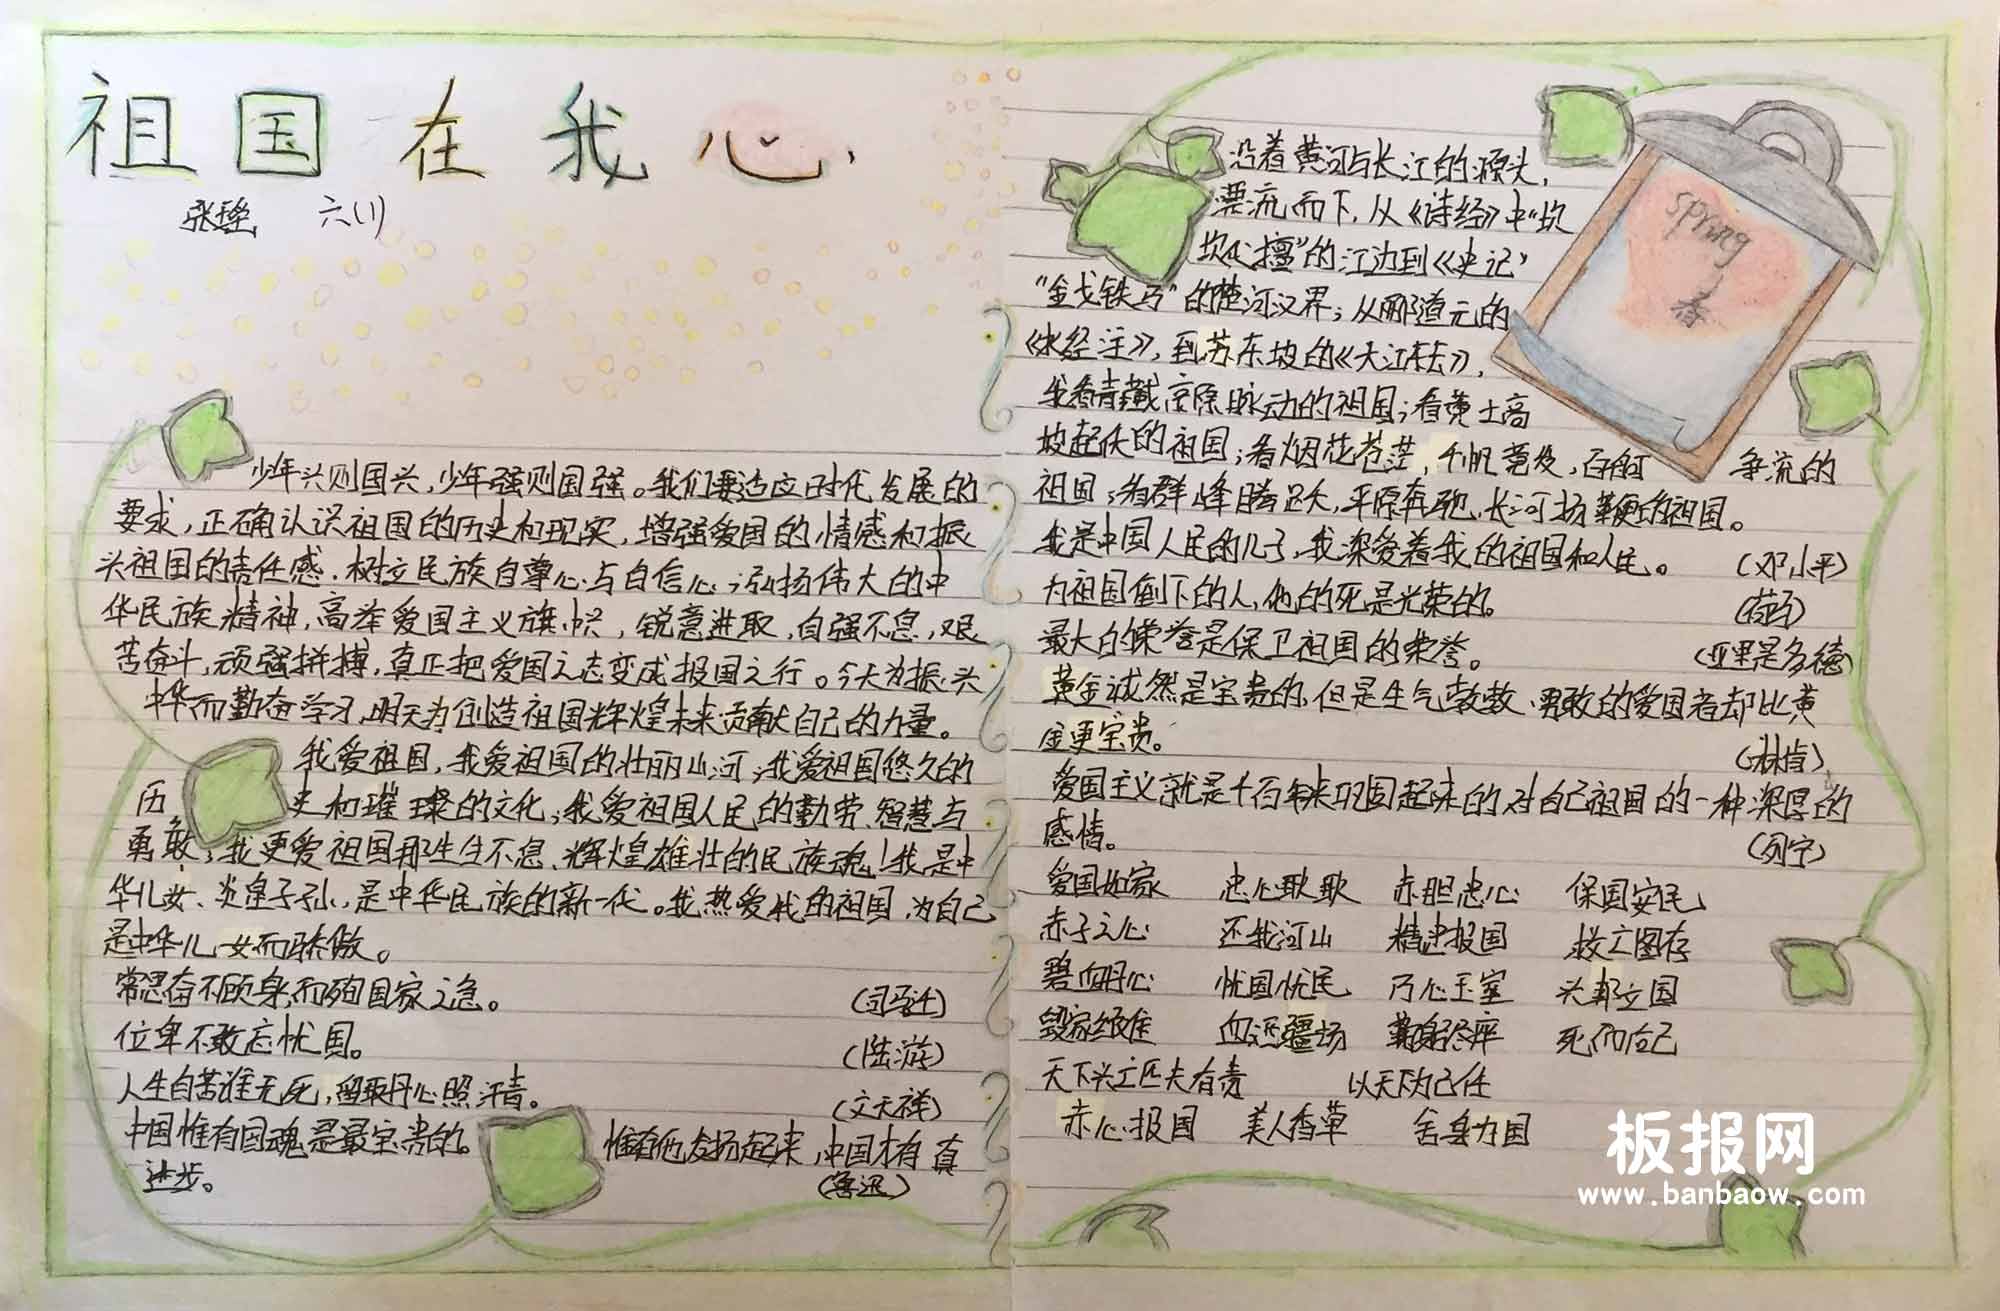 祖国在我心
张 六(1)
少年兴则国兴,少年强则国强。我们要适应时代发展的
要求,正确认识祖国的历史和现实,增强爱国的情感和振
兴祖国的责任感.树立民族自尊心与自信心;弘扬伟大的中
华民族精神,高举爱国主义旗帜,锐意进取,自强不息,艰
苦奋斗,顽强拼搏,真正把爱国之志变成报国之行。今天为振兴
中华而勤奋学习,明天为创造祖国辉煌未来贡献自己的力量。
我爱祖国,我爱祖国的壮丽山河;我爱祖国悠久的
历史和璀璨的文化;我爱祖国人民的勤劳、智慧与
勇敢;我更爱祖国那生生不息、辉煌雄壮的民族魂!我是中
华儿女、炎皇子孙,是中华民族的新一代。我热爱我的祖国,为自己
是中华儿女而骄傲。
常思奋不顾身,而殉国家之急。 (司马迁)
位卑不敢忘忧国。 (陆游)
人生自苦谁无死,留取丹心照汗青。 (文天祥)
中国惟有国魂是最宝贵的。 惟有他发扬起来,中国才有真
进步。 (鲁迅)
沿着黄河与长江的源头,
漂流而下,从《诗经》中"坎
坎伐檀"的江边到《史记》
"金戈铁马"的楚河汉界;从郦道元的
《水经注》,到苏东坡的《大江东去》,
我看青藏高原脉动的祖国;看黄土高
坡起伏的祖国;看烟花苍茫,千帆竞发,百舸 争流的
祖国;看群峰腾跃,平原奔驰,长河扬鞭的祖国。
我是中国人民的儿子,我深爱着我的祖国和人民。 (邓小平)
为祖国倒下的人,他的死是光荣的。 (荷马)
最大的荣誉是保卫祖国的荣誉。 (亚里是多德)
黄金诚然是宝贵的,但是生气勃勃、勇敢的爱国者却比黄
金更宝贵。 (林肯)
爱国主义就是千百年来巩固起来的对自己祖国的一种深厚的
感情。 (列宁)
爱国如家 忠心耿耿 赤胆忠心 保国安民
赤子之心 还我河山 精忠报国 救亡图存
碧血丹心 忧国忧民 乃心王室 兴邦立国
毁家纾难 血洒疆场 鞠躬尽瘁 死而后已
天下兴亡匹夫有责 以天下为己任
赤心报国 美人香草 舍身为国
spring
春
板报网
www.banbaow.com